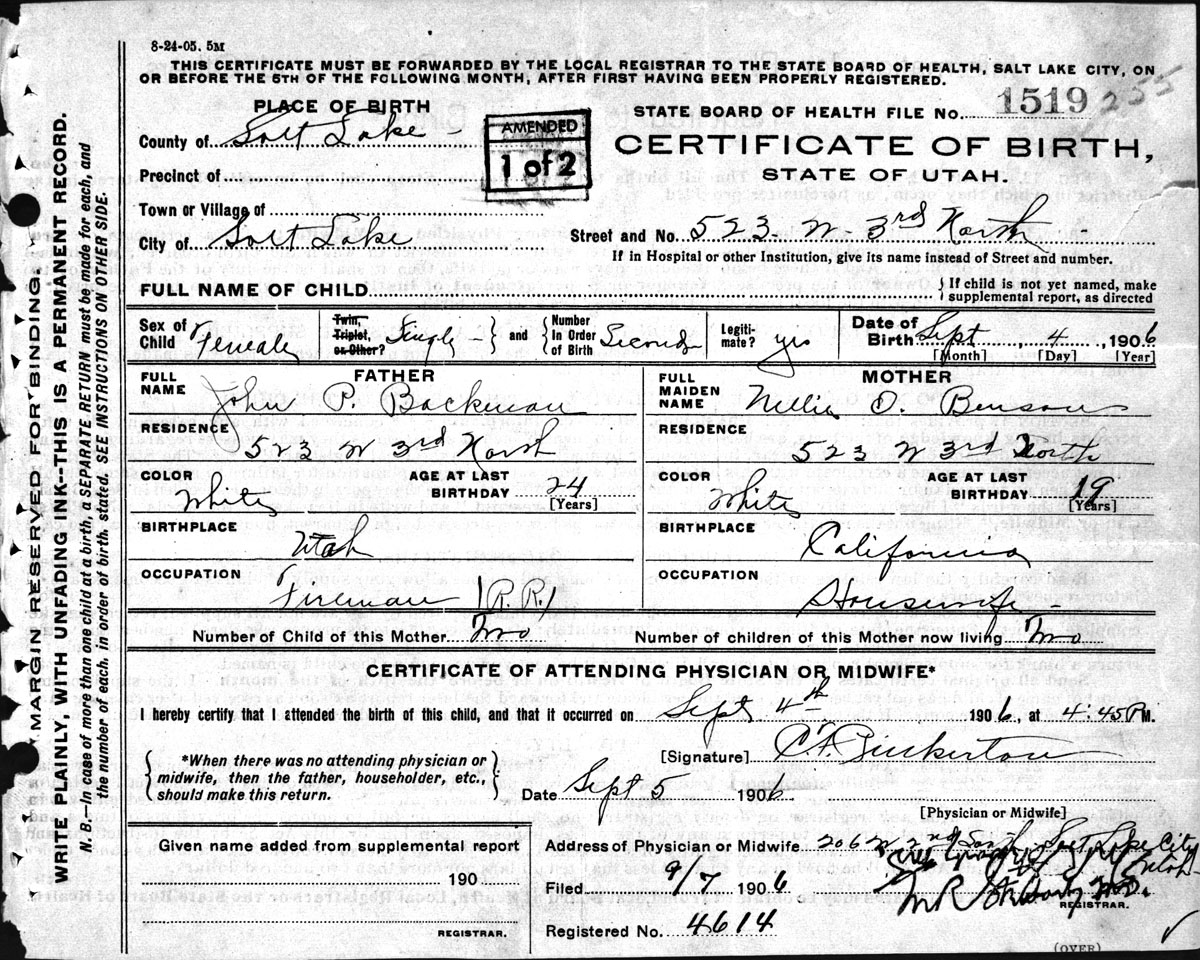 8-24-05. 5M
THIS CERTIFICATE MUST BE FORWARDED BY THE LOCAL REGISTRAR TO THE STATE BOARD OF HEALTH, SALT LAKE CITY, ON
OR BEFORE THE 5TH OF THE FOLLOWING MONTH, AFTER FIRST HAVING BEEN PROPERLY REGISTERED.
PLACE OF BIRTH
STATE BOARD OF HEALTH FILE No. 1519 255
County of Salt Lake
AMENDED
1 of 2
CERTIFICATE OF BIRTH,
STATE OF UTAH.
Precinct of
Town or Village of
City of Salt Lake
Street and No. 523 W- 3rd North
If in Hospital or other Institution, give its name instead of Street and number.
FULL NAME OF CHILD
{ If child is not yet named, make
supplemental report, as directed
Sex of Child Female
Twin, Triplet, or Other? Single } and { Number In Order of Birth Second
Legiti-mate? yes
Date of Birth Sept 4, 1906
[Month] [Day] [Year]
FATHER
FULL NAME John P. Backman
RESIDENCE
523 W 3rd North
COLOR White
AGE AT LAST BIRTHDAY 24
[Years]
BIRTHPLACE
Utah
OCCUPATION
Fireman (R.R.)
MOTHER
FULL MAIDEN NAME Nellie O. Benson
RESIDENCE
523 W 3rd North
COLOR White
AGE AT LAST BIRTHDAY 19
[Years]
BIRTHPLACE
California
OCCUPATION
Housewife
Number of Child of this Mother Two
Number of children of this Mother now living Two
CERTIFICATE OF ATTENDING PHYSICIAN OR MIDWIFE*
I hereby certify that I attended the birth of this child, and that it occurred on Sept 4th 1906, at 4:45 P M.
{ *When there was no attending physician or
midwife, then the father, householder, etc.,
should make this return. }
[Signature] C.F. Pinkerton
Date Sept 5 1906
[Physician or Midwife]
Given name added from supplemental report
190
REGISTRAR.
Address of Physician or Midwife 206 W 2nd South Salt Lake City
Utah.
Filed 9/7 1906
M R
REGISTRAR.
Registered No. 4614
(OVER)
MARGIN RESERVED FOR BINDING.
WRITE PLAINLY, WITH UNFADING INK--THIS IS A PERMANENT RECORD.
N. B.--In case of more than one child at a birth, a SEPARATE RETURN must be made for each, and
the number of each, in order of birth stated. SEE INSTRUCTIONS ON OTHER SIDE.